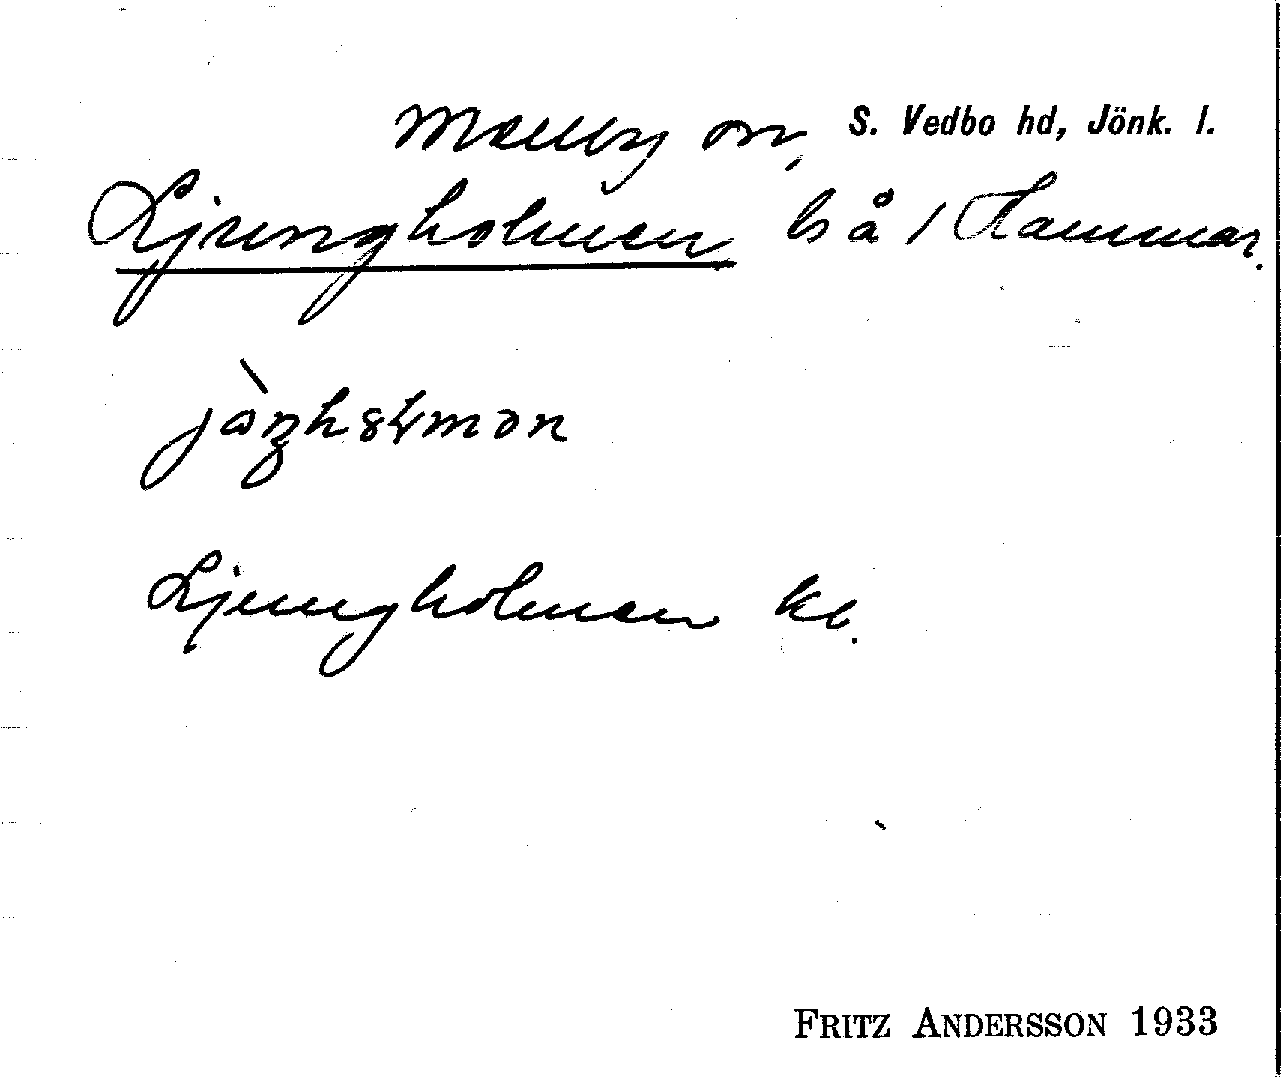 Mellby sn, S. Vedbo hd, Jönk. l.
Ljungholmen bs å / Hammar.
Ljungholmen kb.
FRITZ ANDERSSON 1933